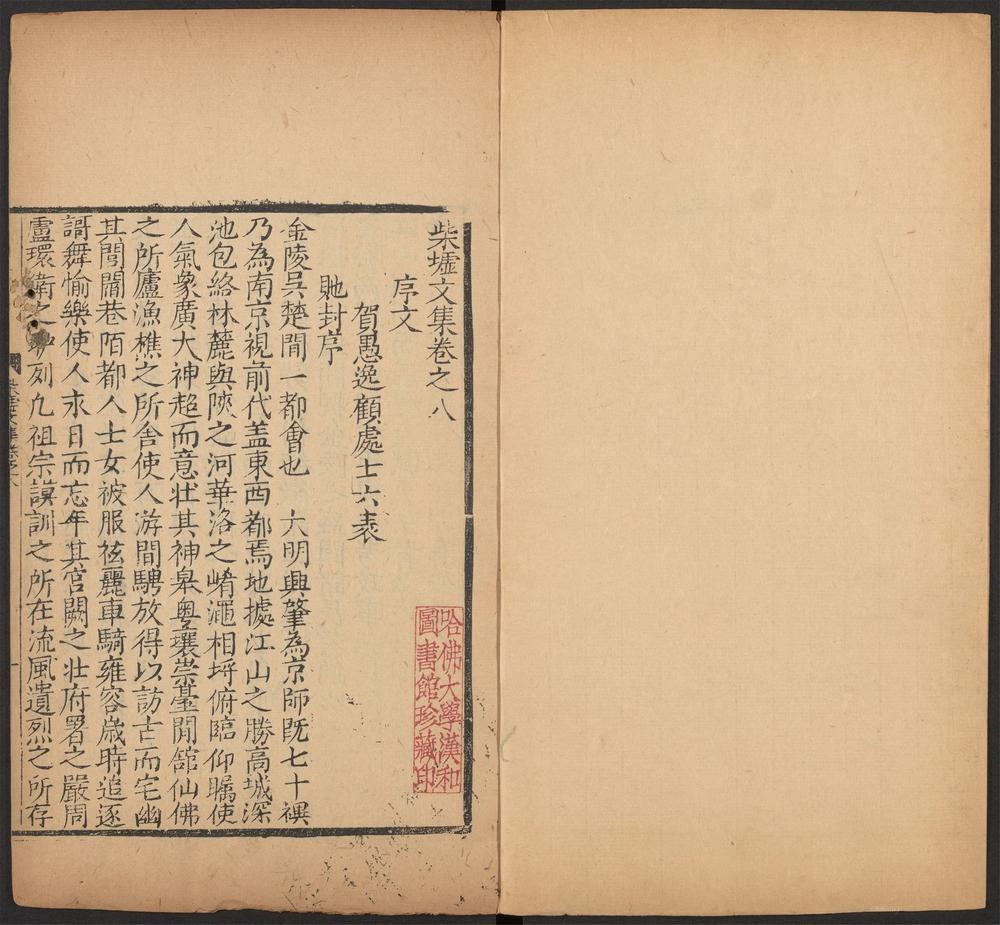 柴墟文集卷之八
序文
賀愚逸顧處士六袠
貤封序
金陵吳楚間一都會也 大明興肇為京師既七十禩
乃為南京視前代盖東西都焉地據江山之勝高城深
池包絡林麓與陝之河華洛之崤澠相埒俯臨仰矚使
人氣象廣大神超而意壯其神皋奧壤崇臺閒舘仙佛
之所廬漁樵之所舍使人游閒騁放得以訪古而宅幽
其閭閻巷陌都人士女被服袨麗車騎雍容歲時追逐
謌舞愉樂使人永日而忘年其宮闕之壯府署之嚴周
廬環衛之 列凡祖宗謨訓之所在流風遺烈之所存
柴墟文集卷之八
一
哈佛大學漢和
圖書館珍藏印